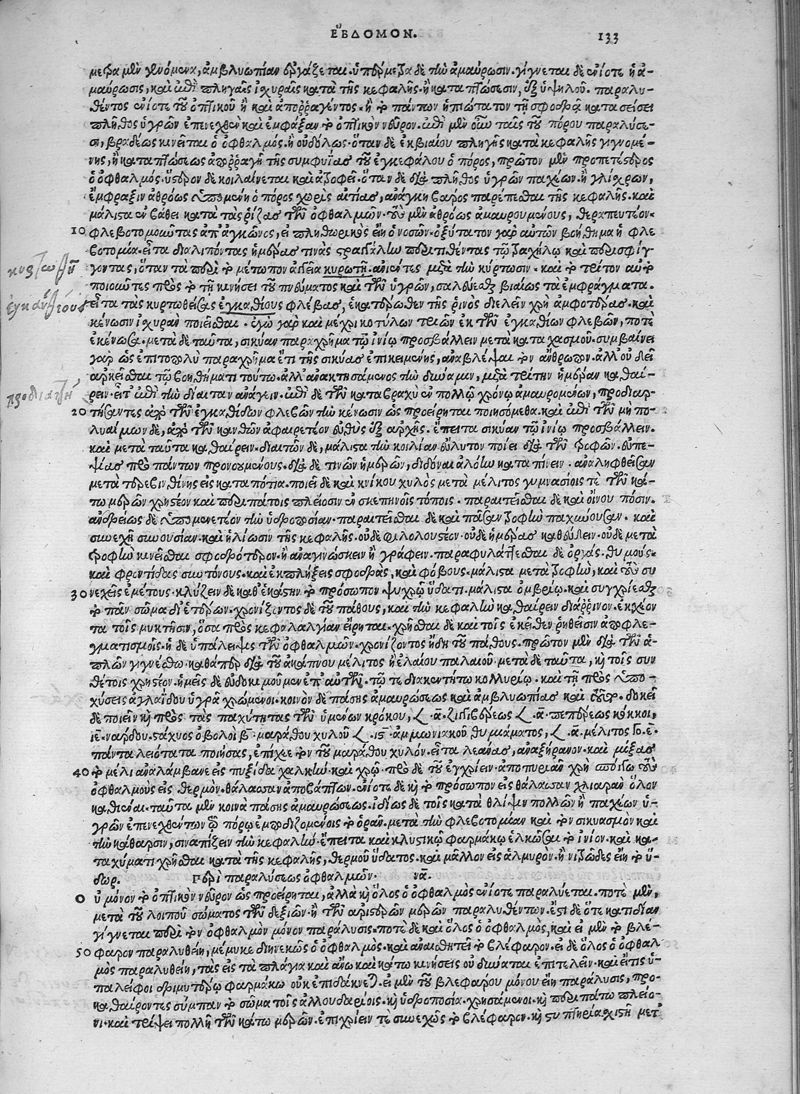 ΕΒΔΟΜΟΝ. 133
μεθα μὲν γινόμενα, ἀμβλυωπίαν ἐργάζεται. ὑπέρμεγα δὲ τὴν ἀμαύρωσιν. γίγνεται δὲ ἐνίοτε ἡ ἀ-
μαύρωσις, καὶ ἐπὶ πληγαῖς ἰσχυραῖς κατὰ τῆς κεφαλῆς. ἢ καταπτώσεσιν, ἐξ ὑψηλοῦ. παραλυ-
θέντος ἐνίοτε τοῦ ὀπτικοῦ ἢ καὶ ἀπορραγέντος. ἢ τὸ πάντων ἥττον τῇ σφοδρᾷ κατασείσει
πλῆθος ὑγρῶν ἐπενεχθὲν καὶ ἐμφράξαν τὸ ὀπτικὸν νεῦρον. ἐπὶ μὲν οὖν ταῖς τοῦ πόρου παραλύσε-
σι, βραδέως κινεῖται ὁ ὀφθαλμὸς, ἢ οὐδόλως. ὅταν δὲ ἐκ βιαίου πληγῆς κατὰ κεφαλῆς γιγνομέ-
νης, ἢ καταπτώσεως ἀπορραγῇ τῆς συμφυΐας τοῦ ἐγκεφάλου ὁ πόρος, πρῶτον μὲν προπετέστερος
ὁ ὀφθαλμὸς. ὕστερον δὲ κοιλαίνεται καὶ ἀτροφεῖ. ὅταν δὲ διὰ πλῆθος ὑγρῶν παχέων ἢ γλίσχρων,
ἔμφραξιν ἀθρόως ὑπομένῃ ὁ πόρος χωρὶς αἰτίας, ἀνάγκη βάρος παρέπεσθαι τῆς κεφαλῆς. καὶ
μάλιστα ἐν βάθει κατὰ τὰς ῥίζας τῶν ὀφθαλμῶν. τοὺς μὲν ἀθρόως ἀμαυρουμένους, θεραπευτέον.
10 φλεβοτομοῦντας ἀπ' ἀγκῶνος, εἰ πληθωρικὸς εἴη ὁ νοσῶν. ὀξύτατον γὰρ αὐτῶν βοήθημα ἡ φλε
βοτομία. εἶτα διαλιπόντας ἡμέρας τινὰς στραγγάλην περιτιθέντας τῷ τραχήλῳ καὶ περισφίγ-
γοντας, ὅταν τὰ περὶ τὸ μέτωπον ἀγγεῖα κυρωτῆ. ἀνιέντες μετὰ τὴν κύρτωσιν. καὶ τρίτον αὐτὸ
ποιοῦντες πρὸς τὸ τῇ κινήσει τοῦ πνεύματος καὶ τῶν ὑγρῶν, σαλεύεσθαι βιαίως τὰ ἐμφράγματα.
εἶτα τὰς κυρτωθείσας ἐγκαθίους φλέβας, ἑκατέρωθεν τῆς ῥινὸς διελεῖν χρὴ ἀμφοτέρας. καὶ
κένωσιν ἰσχυρὰν ποιεῖσθαι. ἐγὼ γὰρ καὶ μέχρι κοτύλων τριῶν ἐκ τῶν ἐγκαθίων φλεβῶν, ποτὲ
ἐκένωσα. μετὰ δὲ ταῦτα, σικύαν παραχρῆμα τῷ ἰνίῳ προσβάλλειν μετὰ κατασχασμοῦ. συμβαίνει
γὰρ ὡς ἐπιτοπολὺ παραχρῆμα ἔτι τῆς σικύας ἐπικειμένης, ἀναβλέψαι τὸν ἄνθρωπον. ἀλλ' οὐ δεῖ
ἀρκεῖσθαι τῷ βοηθήματι τούτῳ. ἀλλ' ἀνακτησάμενος τὴν δύναμιν, μετὰ τρίτην ἡμέραν καθαί-
ρειν. εἶτ' ἐπὶ τὴν δίαιταν ἀνάγειν. ἐπὶ δὲ τῶν κατὰ βραχὺ ἐν πολλῷ χρόνῳ ἀμαυρουμένων, προδιαρ-
20 τήσαντες ἀπὸ τῶν ἐγκαθίδων φλεβῶν τὴν κένωσιν ὡς προείρηται ποιησόμεθα. καὶ ἐπὶ τῶν μὴ πο-
λυαίμων δὲ, ἀπὸ τῶν κανθῶν ἀφαιρετέον εὐθὺς ἐξ ἀρχῆς. ἔπειτα σικύαν τῷ ἰνίῳ προσβάλλειν.
καὶ μετὰ ταῦτα καθαίρειν. διαιτᾶν δὲ, μάλιστα τὴν κοιλίαν εὔλυτον ποιεῖ διὰ τῶν τροφῶν. εὐπε-
ψίας πρὸ πάντων προνοουμένους. διὰ δὲ τινῶν ἡμερῶν, διδόναι ἀλόην καταπίνειν. ἀναληφθεῖσαν
μετὰ τερεβινθίνης εἰς καταπότια. ποιεῖ δὲ καὶ κνίκου χυλὸς μετὰ μέλιτος. γυμνασίοις τε τῶν κά-
τω μερῶν χρηστέον καὶ περιπάτοις πλείοσιν ἐν σκεπηνοῖς τόποις. παραιτεῖσθαι δὲ καὶ οἴνου πόσιν.
ἀνδρείως δὲ ὑπομενετέον τὴν ὑδροποσίαν. παραιτεῖσθαι δὲ καὶ πᾶσαν τροφὴν παχύνουσαν. καὶ
συνεχῆ συνουσίαν. καὶ ἡλίωσιν τῆς κεφαλῆς. οὐδὲ φιλολουστέον. οὐδὲ ἡμέρας καθεύδειν. οὐδὲ μετὰ
τροφὴν κινεῖσθαι σφοδρότερον. ἢ ἀναγινώσκειν ἢ γράφειν. παραφυλάττεσθαι δὲ ὀργάς. θυμούς.
καὶ φροντίδας συντόνους. καὶ ἐκπλήξεις σφοδράς, καὶ φόβους. μάλιστα μετὰ τροφὴν, καὶ τοὺς συ
30 νεχεῖς ἐμέτους. κλύζειν δὲ καθ' ἑκάστην τὸ πρόσωπον ψυχρῷ ὕδατι. μάλιστα ὀμβρίῳ. καὶ συγχρίεσθαι
τὸ πᾶν σῶμα δι' ἑτέρων. χρονίζοντος δὲ τοῦ πάθους, καὶ τὴν κεφαλὴν καθαίρειν διάρρινον. ἐκχέον
τα τοῖς μυκτῆρσιν, ὅσα πρὸς κεφαλαλγίαν εἴρηται. χρῆσθαι δὲ καὶ τοῖς ἐκεῖθεν ῥηθεῖσιν ἀποφλε-
γματισμοῖς. ἡ δὲ ὑπάλειψις τῶν ὀφθαλμῶν. χρονίζοντος ἤδη τοῦ πάθους. πρῶτον μὲν διὰ τῶν ἁ-
πλῶν γιγνέσθω. καθάπερ διὰ τοῦ ἀκάπνου μέλιτος ἢ ἐλαίου παλαιοῦ. μετὰ δὲ ταῦτα, καὶ τοῖς συν
θέτοις χρηστέον. ἡμεῖς δὲ εὐδοκιμοῦμεν ἐπ' αὐτῶν. τῷ τε διακεντητῷ κολλυρίῳ. καὶ τῇ πρὸς ὑπο-
χύσεις ἀγλαΐδου ὑγρᾷ χρώμενοι. κοινὸν δὲ πάσης ἀμαυρώσεως καὶ ἀμβλυωπίας καὶ δοκεῖ
δὲ ποιεῖν καὶ πρὸς τὰς παχύτητας τῶν ὑμένων κρόκου, α. ζιγγιβέρεως α. πεπέρεως κόκκοι,
ιε. νάρδου στάχυος ὀβολοὶ β. μαράθου χυλοῦ ἀμμωνιακοῦ θυμιάματος, α. μέλιτος
πάντα λειότατα ποιήσας, ἐπίχει τὸν τοῦ μαράθου χυλόν. εἶτα λεάνας, ἀναξήρανον. καὶ μίξας
40 τὸ μέλι ἀναλάμβανε εἰς πυξίδα χαλκῆν. καὶ χρῶ. πρὸ δὲ τοῦ ἐγχρίειν. ἀποπυριᾶν χρὴ τοὺς
ὀφθαλμοὺς εἰς θερμὸν. θάλασσαν ἀποβάπτων. ἐνίοτε δὲ καὶ τὸ πρόσωπον εἰς θάλασσαν χλιαρὰν ὅλον
καθιέναι. ταῦτα μὲν κοινὰ πάσης ἀμαυρώσεως. ἰδίως δὲ τοῖς κατὰ θλῖψιν πολλῶν ἢ παχέων ὑ-
γρῶν ἐπενεχθέντων τῷ πόρῳ ἐμποδιζομένοις τὸ ὁρᾶν. μετὰ τὴν φλεβοτομίαν καὶ τὸν σικυασμὸν καὶ
τὴν κάθαρσιν, σιναπίζειν τὴν κεφαλήν. ἔπειτα καὶ καυστικῷ φαρμάκῳ ἑλκῶσαι τὸ ἰνίον. καὶ κα-
ταχύματι χρῆσθαι κατὰ τῆς κεφαλῆς, θερμοῦ ὕδατος. καὶ μᾶλλον εἰς ἁλμυρὸν. ἢ νιτρῶδες εἴη τὸ ὕ-
δωρ. Περὶ παραλύσεως ὀφθαλμῶν. να.
Οὐ μόνον τὸ ὀπτικὸν νεῦρον ὡς προείρηται, ἀλλὰ καὶ ὅλος ὁ ὀφθαλμὸς ἐνίοτε παραλύεται. ποτὲ μὲν,
μετὰ τοῦ λοιποῦ σώματος τῶν δεξιῶν. ἢ τῶν ἀριστερῶν μερῶν παραλυθέντων. ἔστι δὲ ὅτε κατ' ἰδίαν
γίγνεται περὶ τὸν ὀφθαλμὸν μόνον παράλυσις. ποτὲ δὲ καὶ ὅλος ὁ ὀφθαλμός, καὶ εἰ μὲν τὸ βλέ-
50 φαρον παραλυθείη, μέμυκε διηνεκῶς ὁ ὀφθαλμὸς. καὶ ἀναισθητεῖ τὸ βλέφαρον. εἰ δὲ ὅλος ὁ ὀφθαλ
μὸς παραλυθείη, τὰς εἰς τὰ πλάγια καὶ ἄνω καὶ κάτω κινήσεις οὐ δύναται ἐπιτελεῖν. καὶ εἴ τις ὑ-
παλείφοι δριμυτέρῳ φαρμάκῳ οὐκ ἐπιδάκνεται. εἰ μὲν τοῦ βλεφάρου μόνου εἴη παράλυσις, προ-
καθαίροντες σύμπαν τὸ σῶμα τοῖς ἄλλου δαρίοις. καὶ ὑδροποσίᾳ. χρησάμενοι. καὶ περιπάτῳ πλείο-
νι. καὶ τρίψει πολλῇ τῶν κάτω μερῶν. ἐπιχρίειν τε συνεχῶς τὸ βλέφαρον. καὶ στυπτηρίᾳ σχιστῇ μετ'